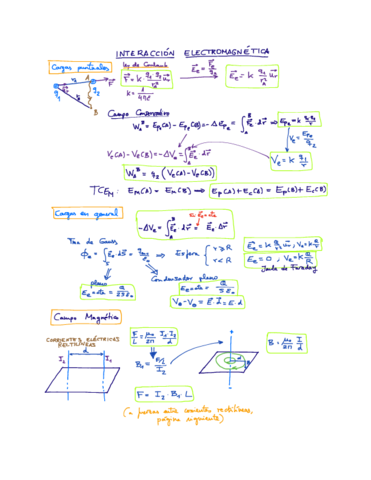 INTERACCIÓN ELECTROMAGNÉTICA
Cargas puntuales
Ley de Coulomb
F = K q1 q2 / r² ur
K = 1 / 4πε
Ee = Fe / q2
Ee = K q1 / r² ur
Campo Conservativo
W_A^B = Ep(A) - Ep(B) = -ΔEp = ∫_A^B Fe · dr ⇒ Epe = K q1 q2 / r
Ve = Epe / q2
Ve(A) - Ve(B) = -ΔVe = ∫_A^B Ee · dr
Ve = K q1 / r
W_A^B = q2 (Ve(A) - Ve(B))
TCEM: EM(A) = EM(B) ⇒ Ep(A) + Ec(A) = Ep(B) + Ec(B)
Cargas en general
-ΔVe = ∫_A^B Ee · dr = Ee · Δr
Teo. de Gauss
Esfera
r ≥ R
r < R
Ee = 0
Jaula de Faraday
plano
Condensador plano
Campo Magnético
CORRIENTES ELÉCTRICAS RECTILÍNEAS
I1 d I2
F/L = μ0 / 2π I1 I2 / d
B1 = F/L / I2
B = μ0 / 2π I / d
F = I2 · B1 · L
(a fuerzas entre corrientes rectilíneas,
página siguiente)